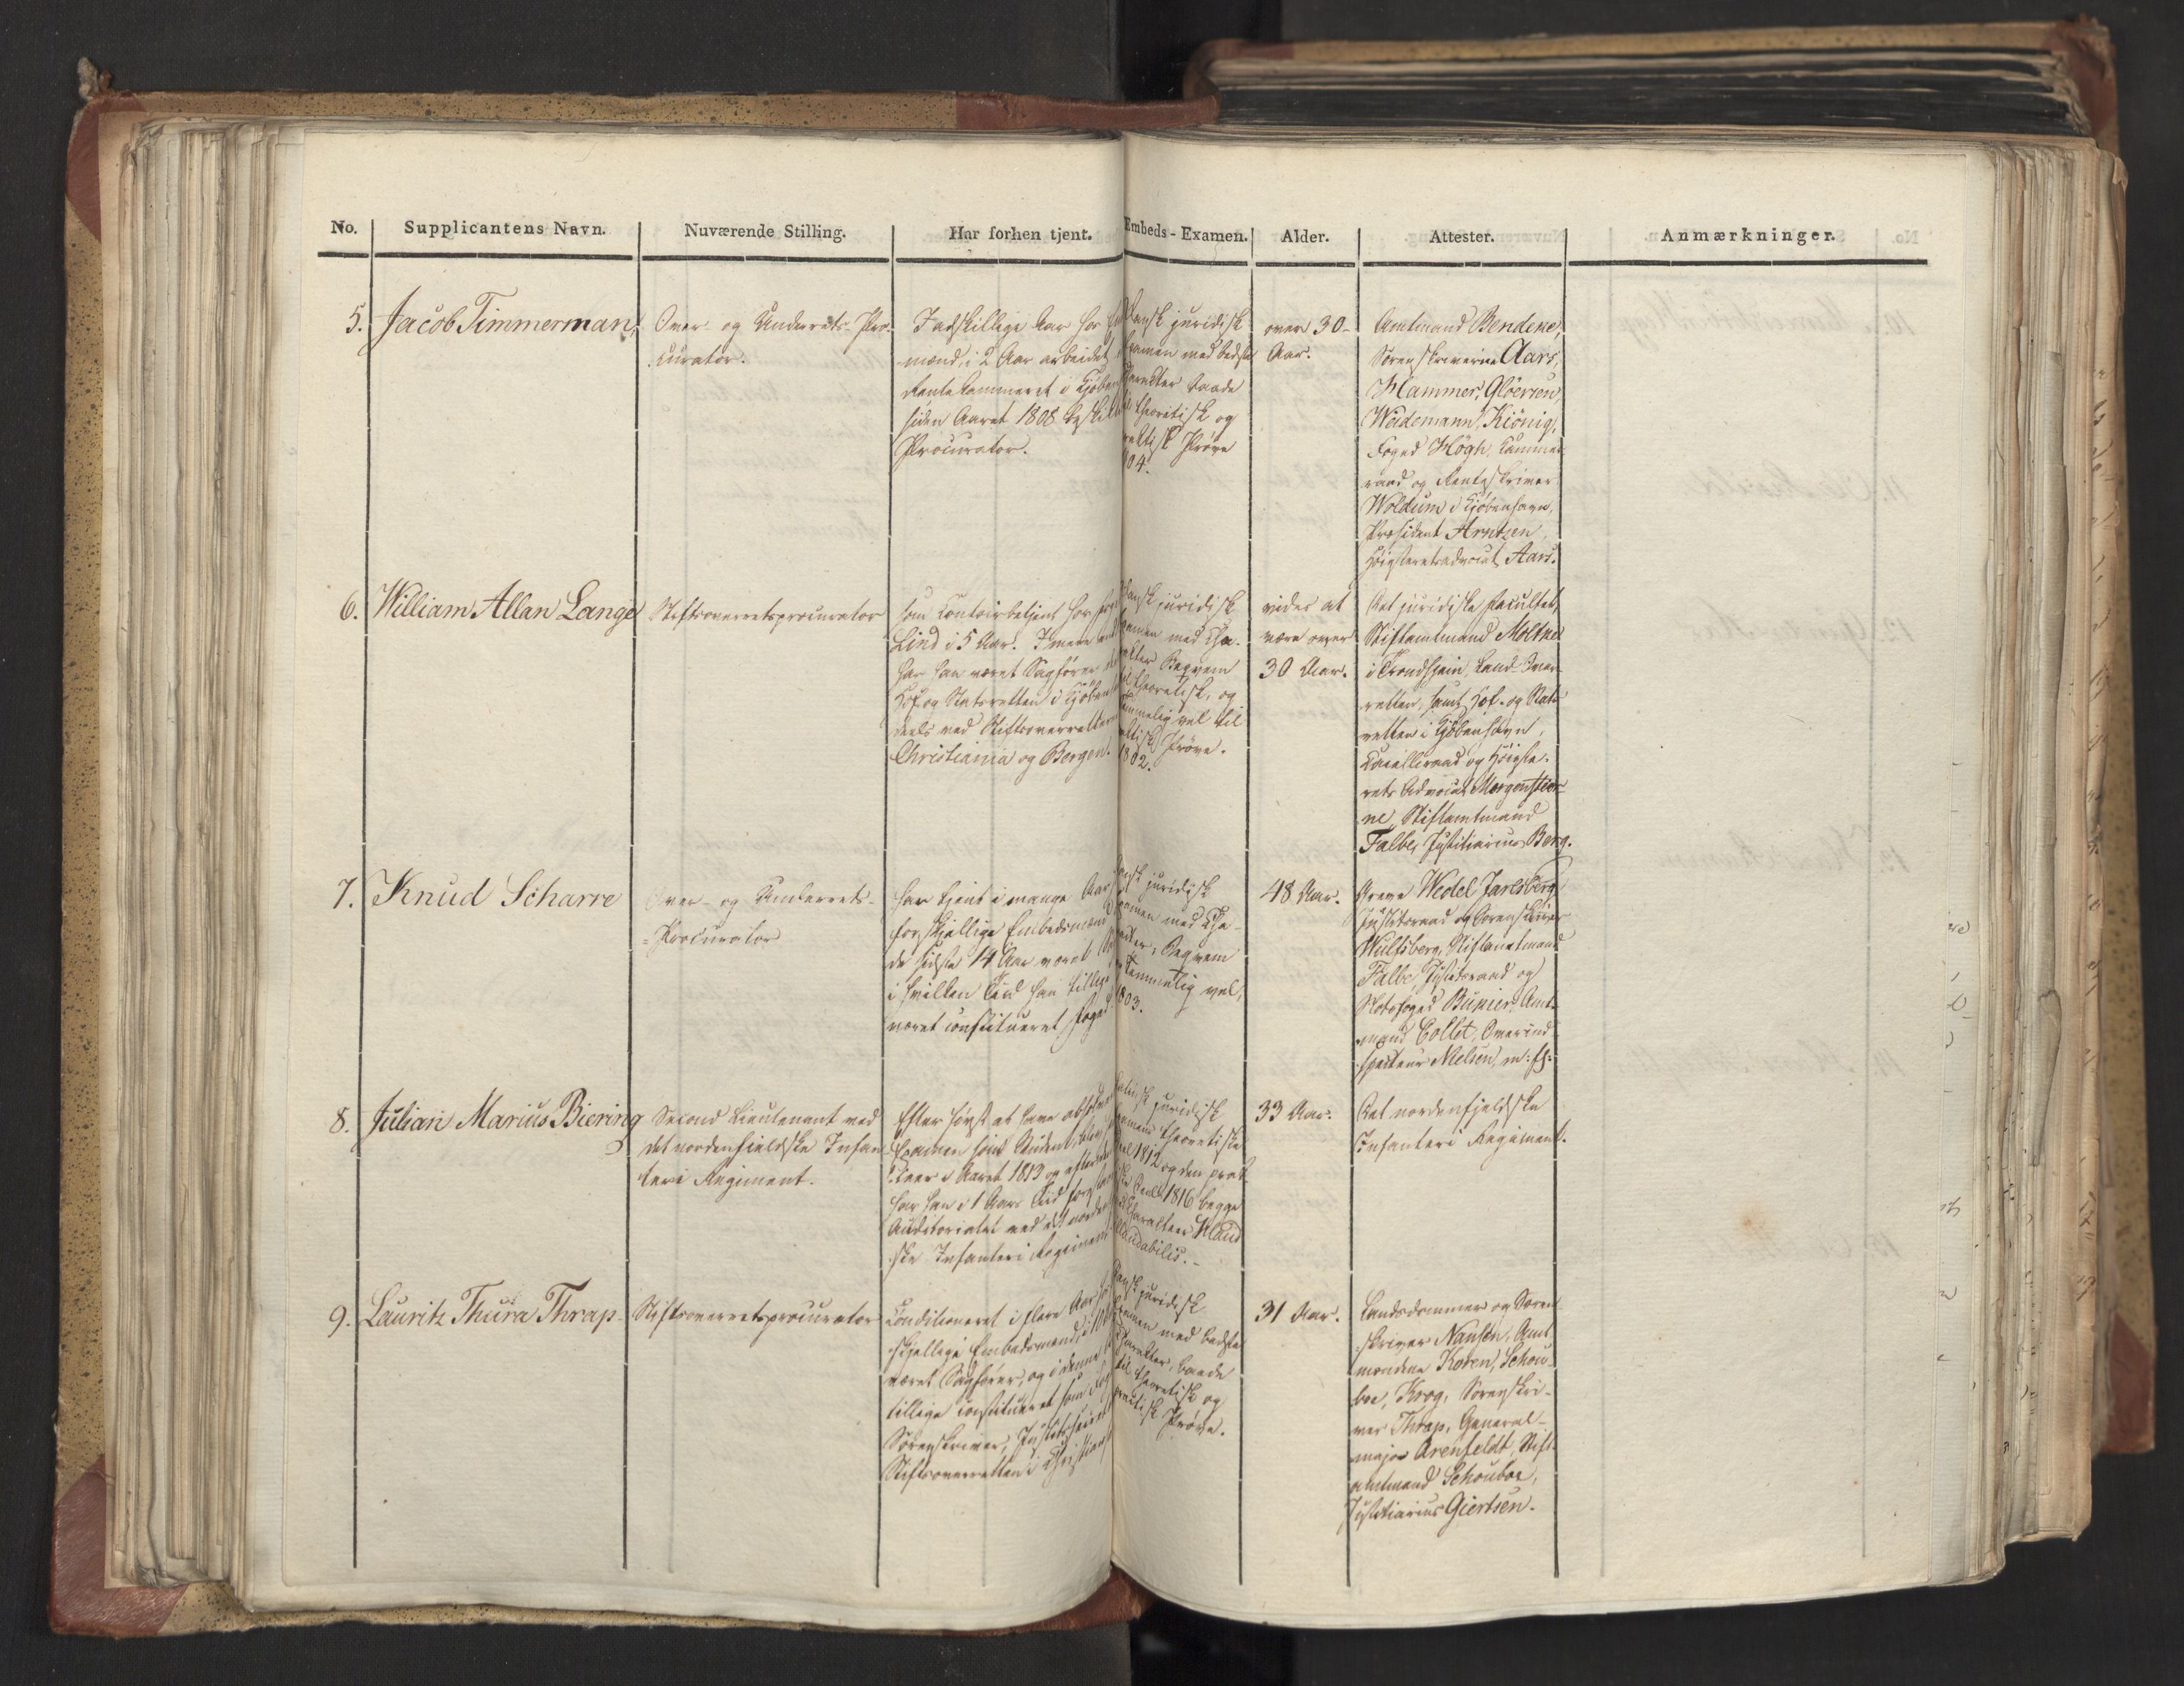 No. Supplicantens Navn. Nuværende Stilling. Har forhen tjent. Embeds-Examen. Alder. Attester. Anmærkninger.
5. Jacob Timmerman,
Over- og Underrets-Pro-
curator.
I adskillige Aar hos
mænd, i 2 Aar arbeidet
Rentekammeret i Kjøben
siden Aaret 1808 beskik
Procurator.
Dansk juridisk
xamen med bedste
aracter baade
theoritisk og
ractisk Prøve
804.
over 30-
Aar.
Amtmand Bendeke,
Sorenskriverne Aars,
Hammer, Gløersen,
Weidemann, Kiönig,
Foged Høgh, Kammer
raad og Renteskriver
Woldum i Kjøbenhavn,
Præsident Arntzen,
Høiesteretsadvocat Aars.
6. William Allan Lange
Stiftsoverretsprocurator
som Contoirbetjent hos
Lind i 5 Aar. I mere end
har han været Sagfører
Hof og Statsretten i Kjøben
deels ved Stiftsoverretterne
Christiania og Bergen.
Dansk juridisk
xamen med Cha-
racter Beqvem
theoretisk, og
temmelig vel til
actisk Prøve.
1802.
vides at
være over
30 Aar.
Det juridiske Facultet,
Stiftamtmand Moltke
i Trondhjem, Land-Over
retten, samt Hof- og Stats
retten i Kjøbenhavn,
Cancelliraad og Høieste-
rets Advocat Morgenstier-
ne, Stiftamtmand
Falbe, Justitiarius Berg.
7. Knud Scharre
Over- og Underrets-
-Procurator
har tjent i mange Aar
forskjellige Embedsmænd
de sidste 14 Aar været
i hvilken Tid han tillige
været constitueret Foged
ansk juridisk
xamen med Cha-
racter, Beqvem
temmelig vel,
1803.
48 Aar.
Greve Wedel Jarlsberg
Justitsraad og Sorenskriver
Wulfsberg, Stiftamtmand
Falbe, Justitsraad og
Slotsfoged Bumier, Amt-
mand Collet, Overind-
specteur Nielsen, m. fl.
8. Julian Marius Biering
Second Lieutenant ved
det nordenfieldske Infan
teri Regiment.
Efter først at have absolveret
Examen som Student, blev
ceer i Aaret 1813 og efter
har han i 1 Aars Tid fore
Auditoriatet ved det norden
ske Infanteri Regiment
atinsk juridisk
xamens theoretiske
Deel 1812 og den prac
ske Deel 1816 begge
Characteer Haud
illaudabilis.-
33 Aar.
Det nordenfjeldske
Infanteri Regiment.
9. Lauritz Thura Thrap
Stiftsoverretsprocurator
Conditioneret i flere Aar
skjellige Embedsmænd, i 180
været Sagfører, og i denne
tillige constitueret som
Sorenskriver, Justitssecret
Stiftsoverretten i Christians
Dansk juridisk
Examen med bedste
Character, baade
til theoretisk og
practisk Prøve.
31 Aar.
Landsdommer og Soren
skriver Nansen, Amt
mændene Koren, Schou-
boe, Krog, Sorenskri-
ver Thrap, General-
major Arenfeldt, Stift
amtmand Schouboe,
Justitiarius Giertsen.